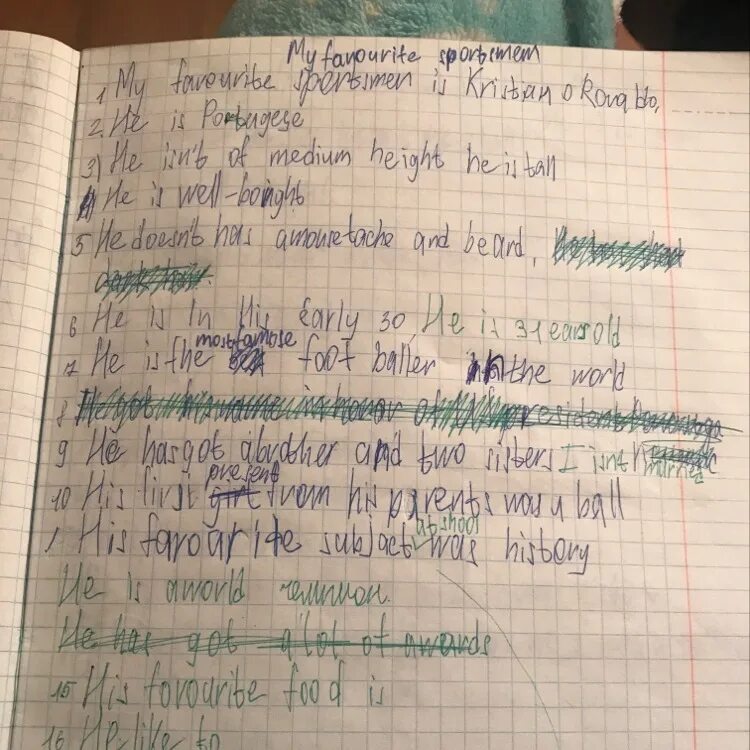 My favourite sportsmen
1 My favourite sportsmen is Kristiano Ronaldo.
2. He is Portugese
3) He isn't of medium height he is tall
4 He is well-bonght
5 He doesn't has a mouretache and beard.
6 He is in His Early 30, He is 31 earsold
7 He is the most famose foot baller in the world
8 He got his name in honor of president
9 He hasgot abrother and two sisters I isnt married
10 His first present from his parents was a ball
1 His favourite subject at shool was history
He is a world
He has got a lot of awards
15 His fovourite food is
16 He like to